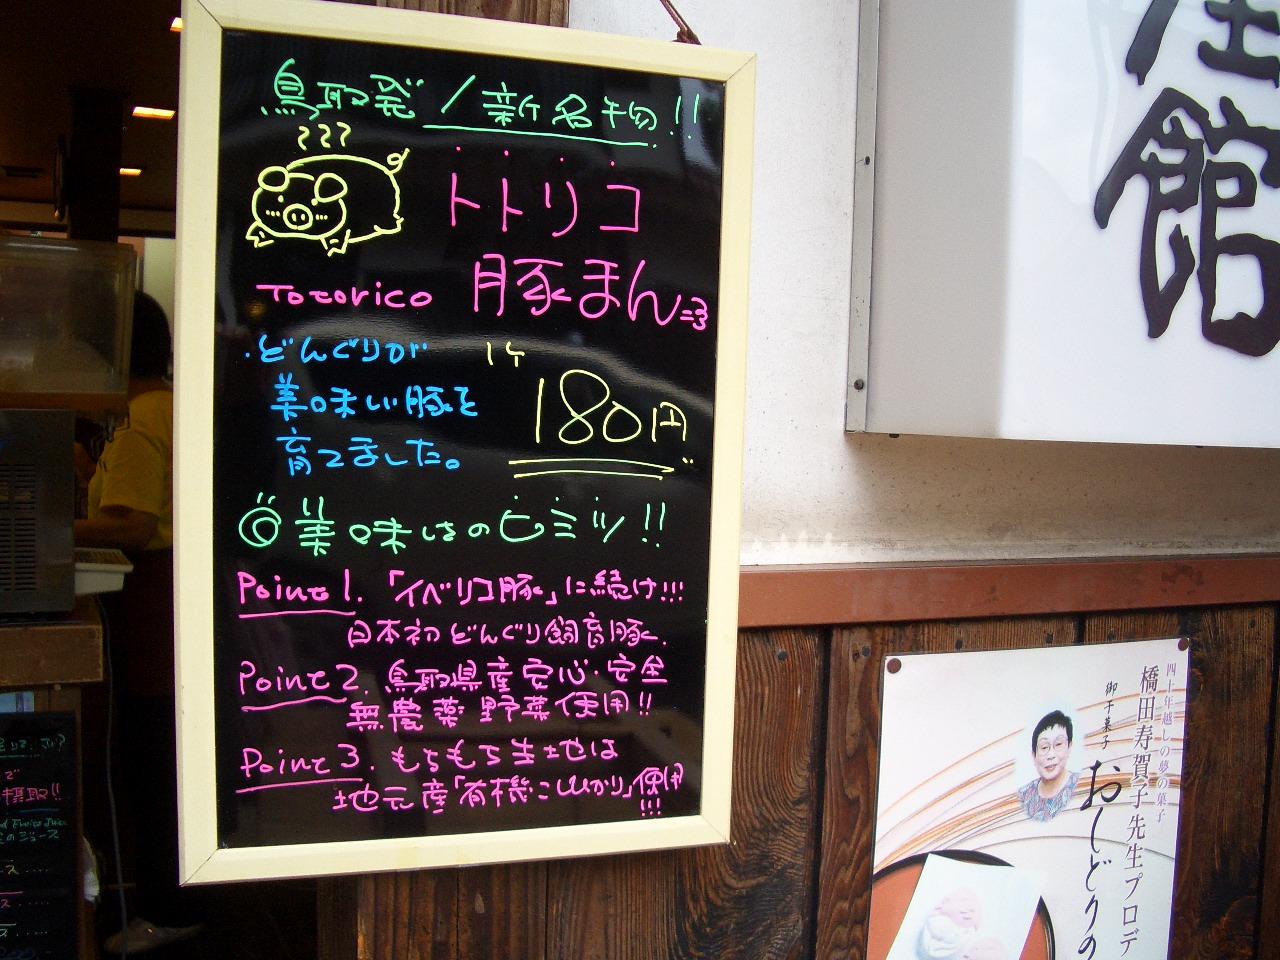 鳥取発/新名物!!
トトリコ
Totorico 豚まん
・どんぐりが
美味しい豚を
育てました。
1ケ
180円
◎美味しさのヒミツ!!
Point 1. 「イベリコ豚」に続け!!!
日本初どんぐり飼育豚。
Point 2. 鳥取県産安心・安全
無農薬野菜使用!!
Point 3. もちもち生地は
地元産「有機こしひかり」使用
!!!
館
四十年越しの夢の菓子
橋田寿賀子先生プロデ
御干菓子
おしどりの
摂取!!